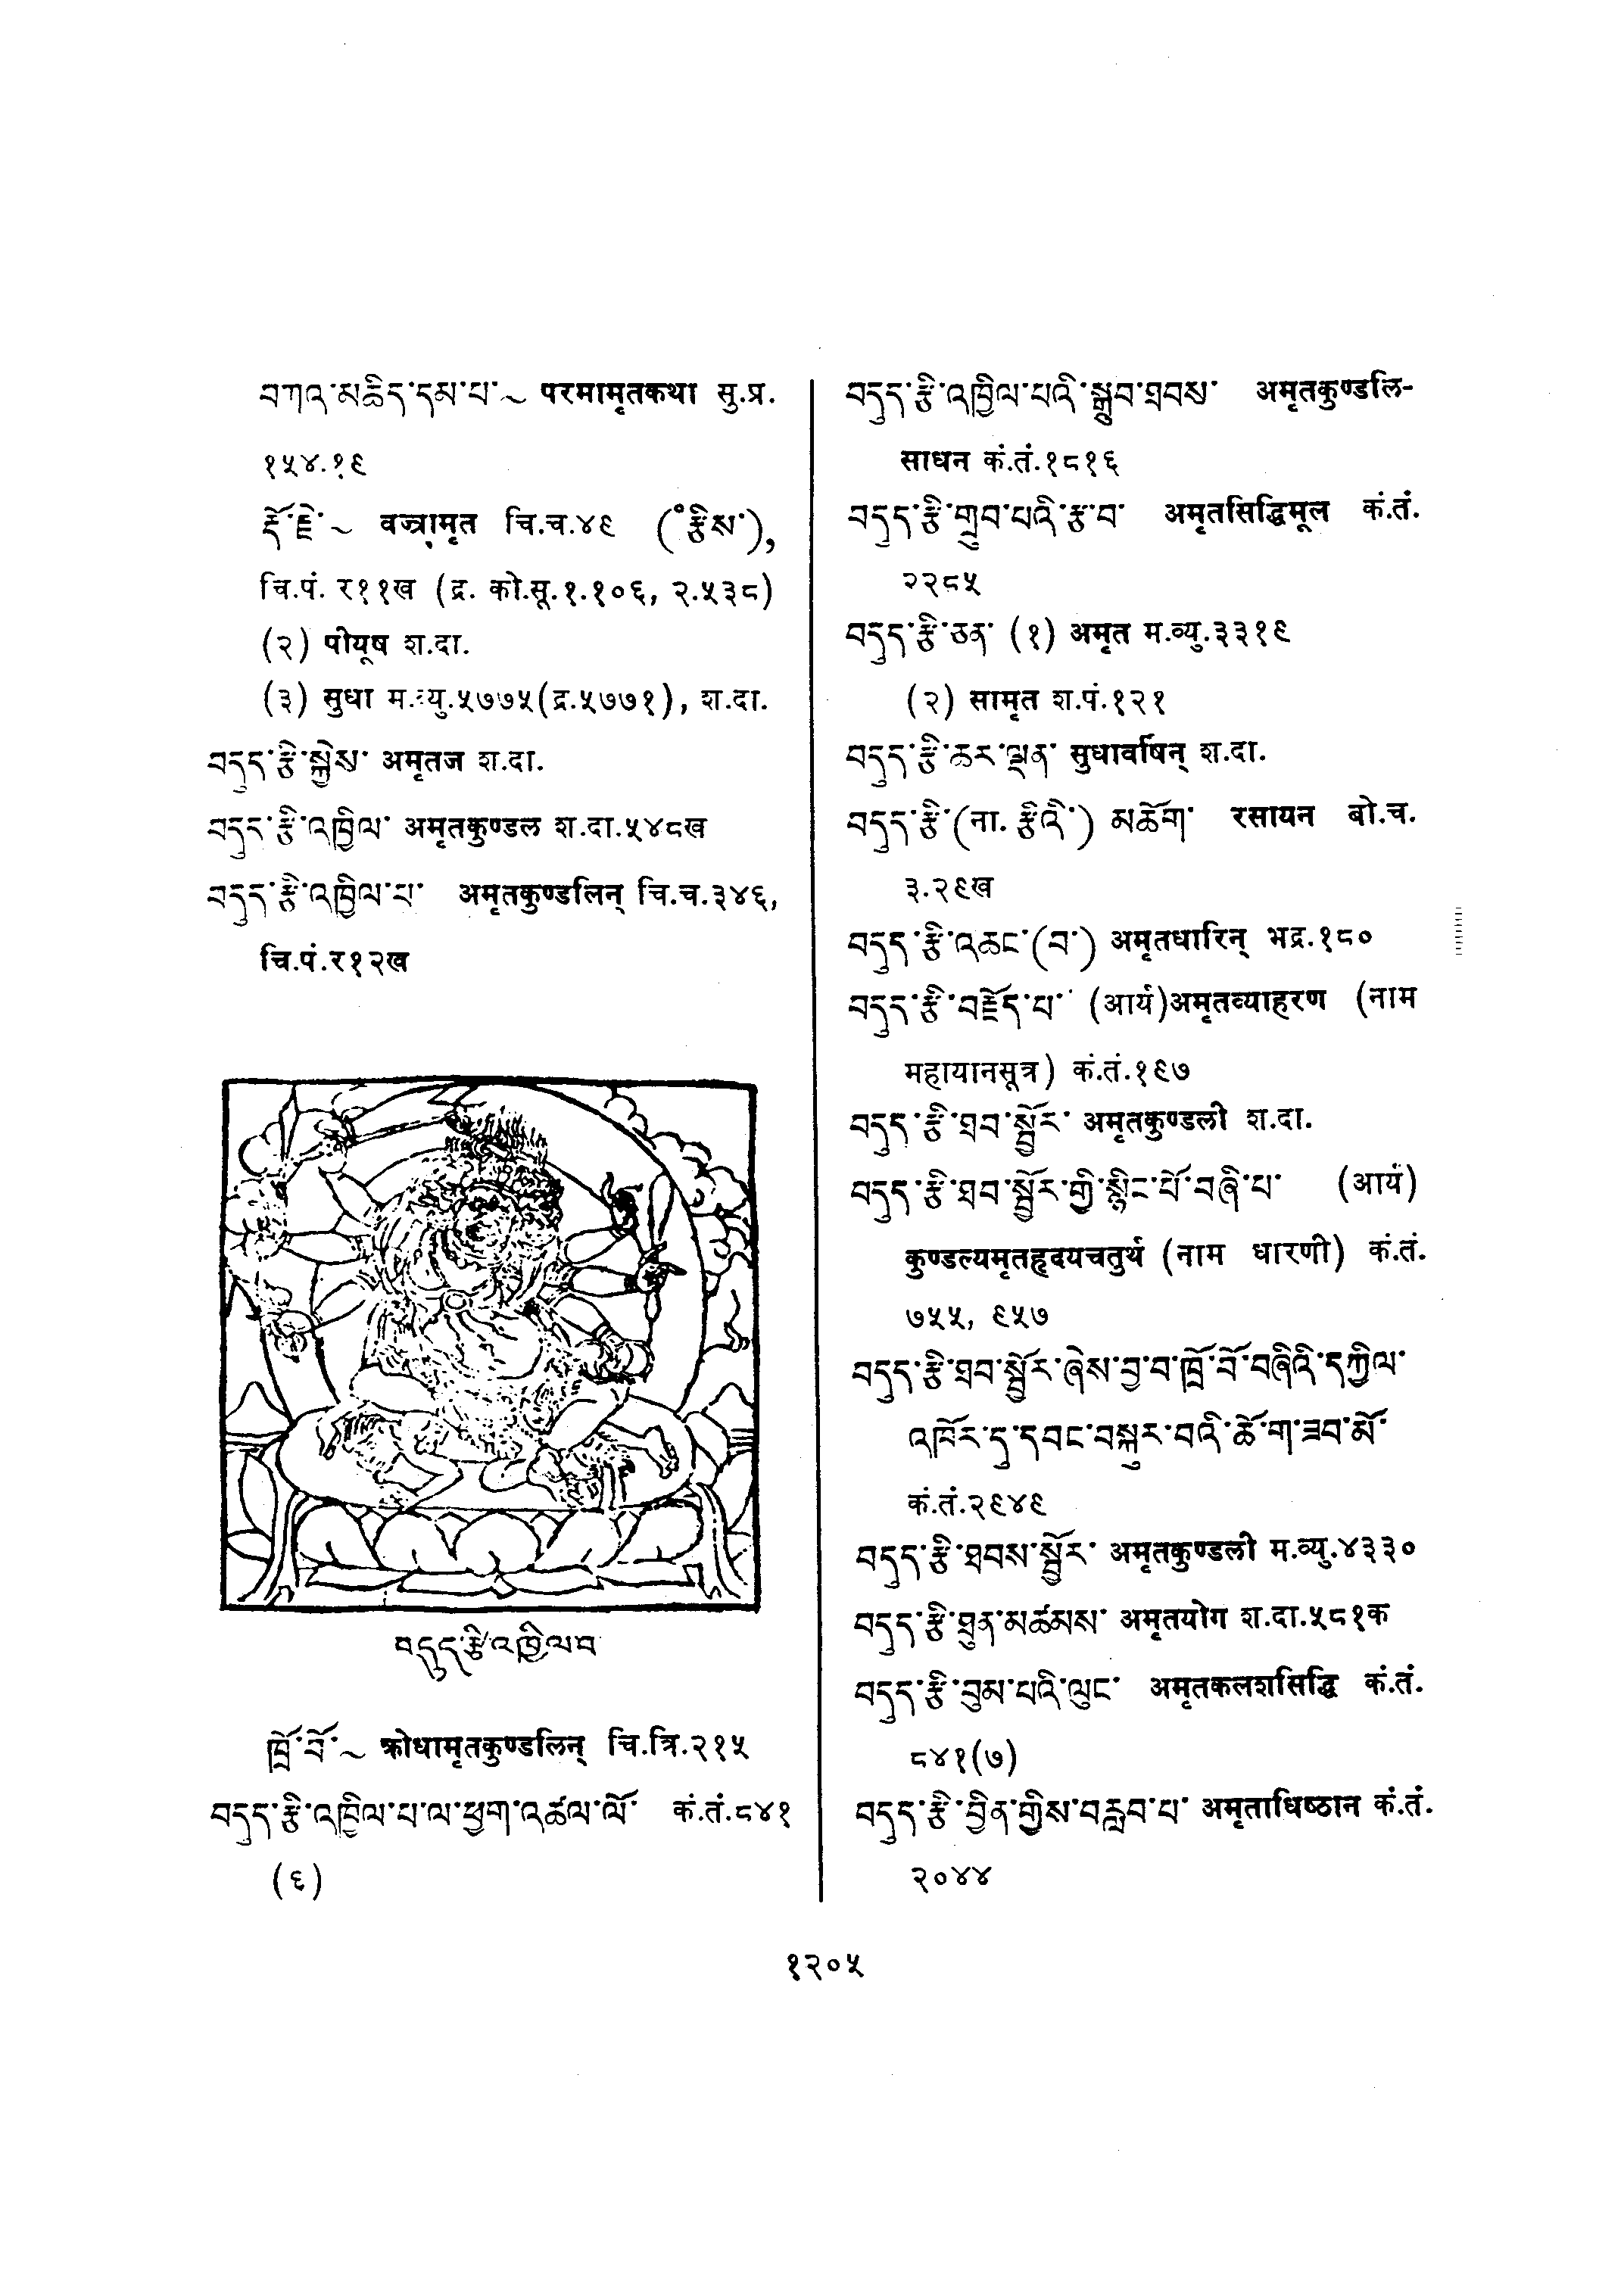 བཀའ་མཆིད་དམ་པ་~ परमामृतकथा सु.प्र.
१५४.१९
རྡོ་རྗེ་~ वज्रामृत चि.च.४९ (°རྩིས་),
चि.पं. र११ख (द्र. को.सू.१.१०६, २.५३८)
(२) पीयूष श.दा.
(३) सुधा म.व्यु.५७७५(द्र.५७७१), श.दा.
བདུད་རྩི་སྐྱེས་ अमृतज श.दा.
བདུད་རྩི་འཁྱིལ་ अमृतकुण्डल श.दा.५४८ख
བདུད་རྩི་འཁྱིལ་པ་ अमृतकुण्डलिन् चि.च.३४६,
चि.पं.र१२ख
བདུད་རྩི་འཁྱིལ་བ
ཁྲོ་བོ་~ क्रोधामृतकुण्डलिन् चि.त्रि.२१५
བདུད་རྩི་འཁྱིལ་པ་ལ་ཕྱག་འཚལ་ལོ་ कं.तं.८४१
(६)
བདུད་རྩི་འཁྱིལ་པའི་སྒྲུབ་ཐབས་ अमृतकुण्डलि-
साधन कं.तं.१८१६
བདུད་རྩི་གྲུབ་པའི་རྩ་བ་ अमृतसिद्धिमूल कं.तं.
२२८५
བདུད་རྩི་ཅན་ (१) अमृत म.व्यु.३३१९
(२) सामृत श.पं.१२१
བདུད་རྩི་ཆར་ལྡན་ सुधावर्षिन् श.दा.
བདུད་རྩི་(ना. རྩིའི་) མཆོག་ रसायन बो.च.
३.२९ख
བདུད་རྩི་འཆང་(བ་) अमृतधारिन् भद्र.१८०
བདུད་རྩི་བརྗོད་པ་ (आर्य)अमृतव्याहरण (नाम
महायानसूत्र) कं.तं.१९७
བདུད་རྩི་ཐབ་སྦྱོར་ अमृतकुण्डली श.दा.
བདུད་རྩི་ཐབ་སྦྱོར་གྱི་སྙིང་པོ་བཞི་པ་ (आर्य)
कुण्डल्यमृतहृदयचतुर्थ (नाम धारणी) कं.तं.
७५५, ९५७
བདུད་རྩི་ཐབ་སྦྱོར་ཞེས་བྱ་བ་ཁྲོ་བོ་བཞིའི་དཀྱིལ་
འཁོར་དུ་དབང་བསྐུར་བའི་ཆོ་ག་ཟབ་མོ་
कं.तं.२९४९
བདུད་རྩི་ཐབས་སྦྱོར་ अमृतकुण्डली म.व्यु.४३३०
བདུད་རྩི་ཐུན་མཚམས་ अमृतयोग श.दा.५८१क
བདུད་རྩི་བུམ་པའི་ལུང་ अमृतकलशसिद्धि कं.तं.
८४१(७)
བདུད་རྩི་བྱིན་གྱིས་བརླབ་པ་ अमृताधिष्ठान कं.तं.
२०४४
१२०५